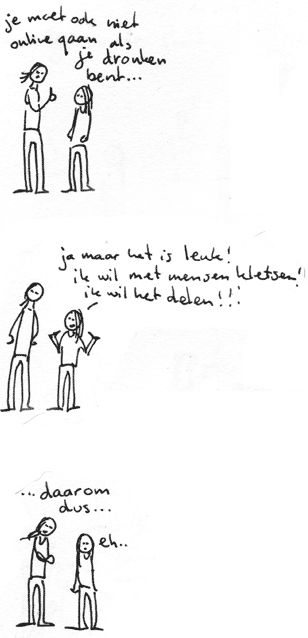 je moet ook niet
online gaan als
je dronken
bent...
ja maar het is leuk!
ik wil met mensen kletsen!!
ik wil het delen!!!
...daarom
dus...
eh..